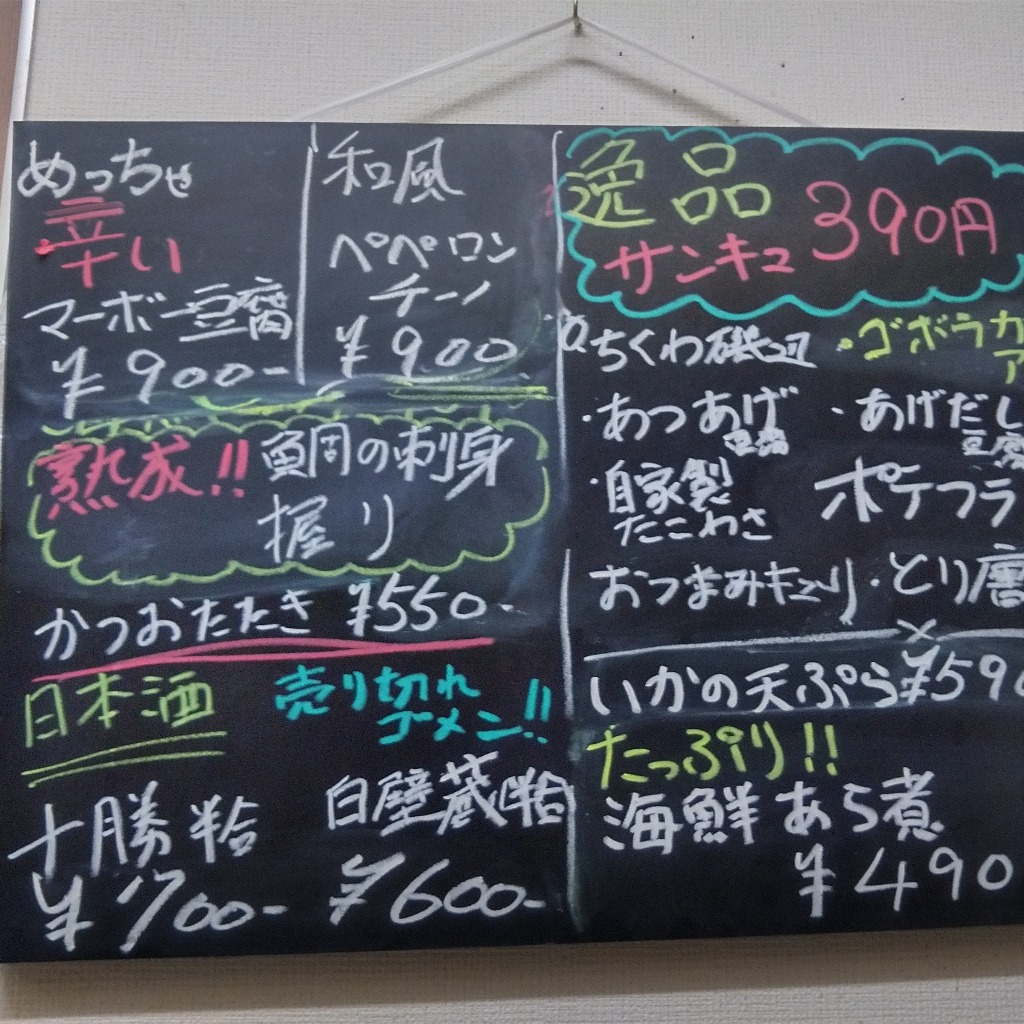 めっちゃ
辛い
マーボー豆腐
¥900-
和風
ペペロン
チーノ
¥900
熟成!! 鯛の刺身
握り
かつおたたき ¥550-
日本酒 売り切れ
ゴメン!!
十勝
¥700-
白壁蔵
¥600-
逸品
サンキュー 390円
ちくわ磯辺
・ゴボウカ
ア
・あつあげ
豆腐
・あげだし
豆腐
・自家製
たこわさ
ポテフラ
おつまみキュウリ
・とり
いかの天ぷら ¥590
たっぷり!!
海鮮あら煮
¥490